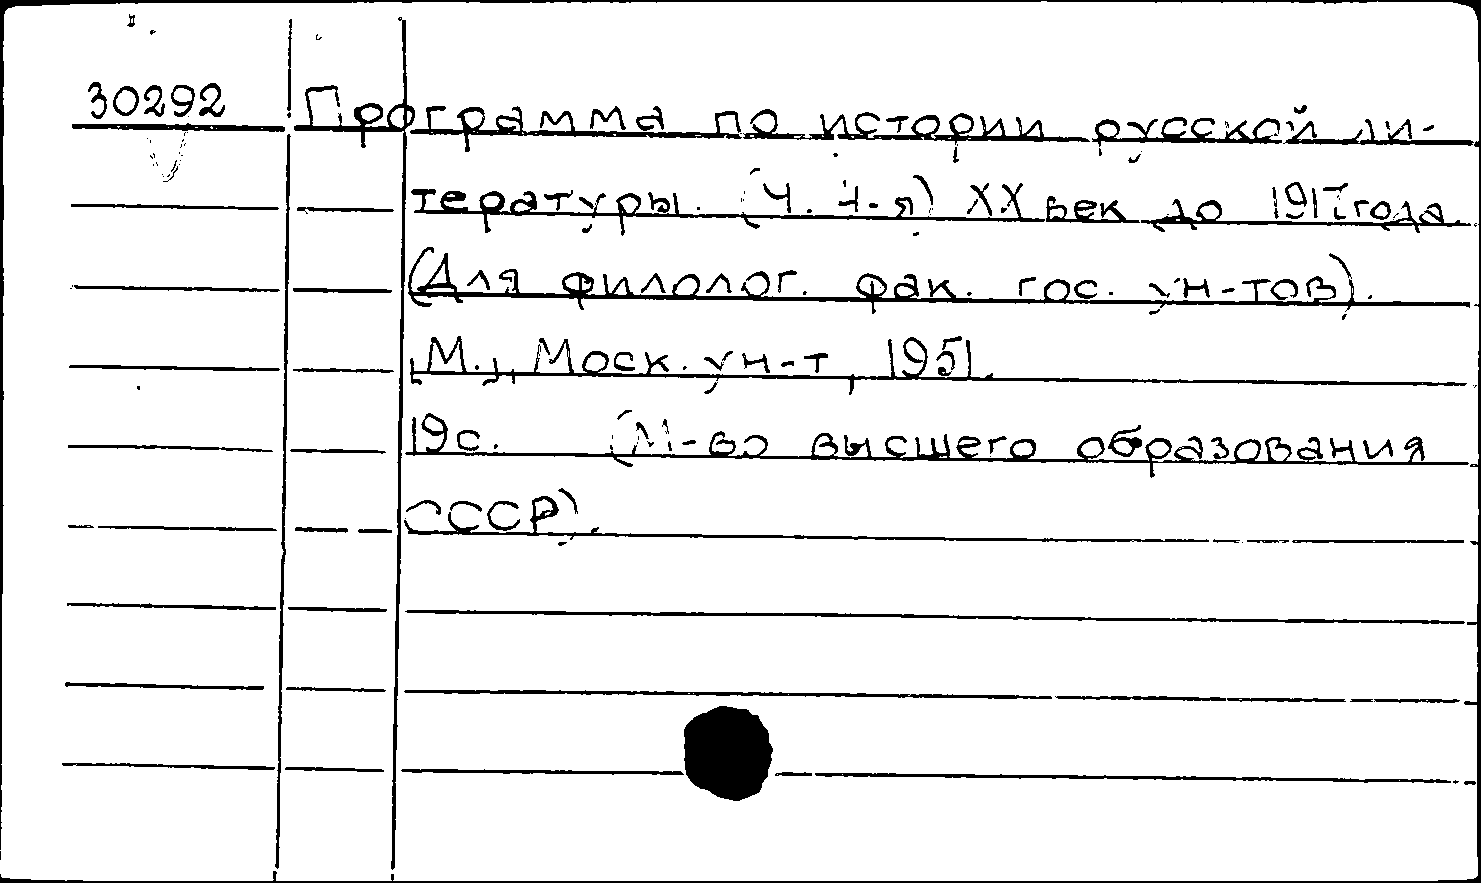 30292 Программа по истории русской ли-
тературы. (Ч. 4-я) XX век до 1917 года
(Для филолог. фак. гос. ун-тов).
[М.], Моск. ун-т, 1951.
19с. (М-во высшего образования
СССР).